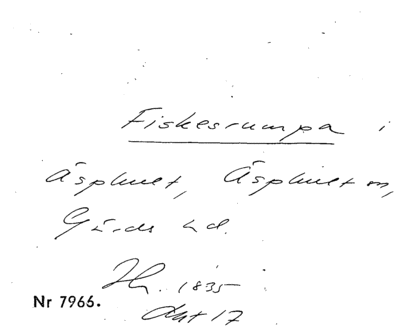 Fiskesrumpa i
Äsphult, Äsphult sn,
Gärds hd.
Hh. 1835
dat 17
Nr 7966.